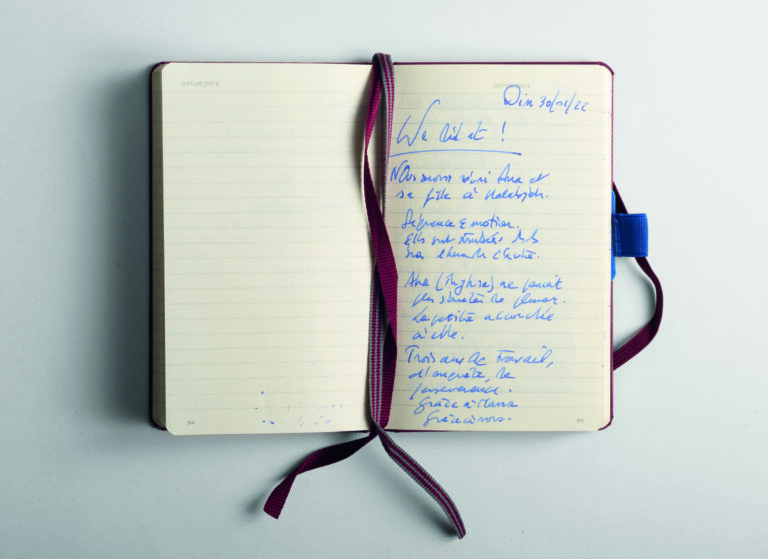 DATUM/DATE
94
DATUM/DATE
Dim 30/01/22
We did it !
Nous avons réuni Ana et
sa fille à Halabja.
Séquence émotion.
Elles sont tombées ds les
bras l'une de l'autre.
Ana ( ) ne pouvait
plus s'arrêter de pleurer.
La petite accrochée
à elle.
Trois ans de travail,
d'enquête, de
persévérance.
Grâce à
Grâce à nous.
95